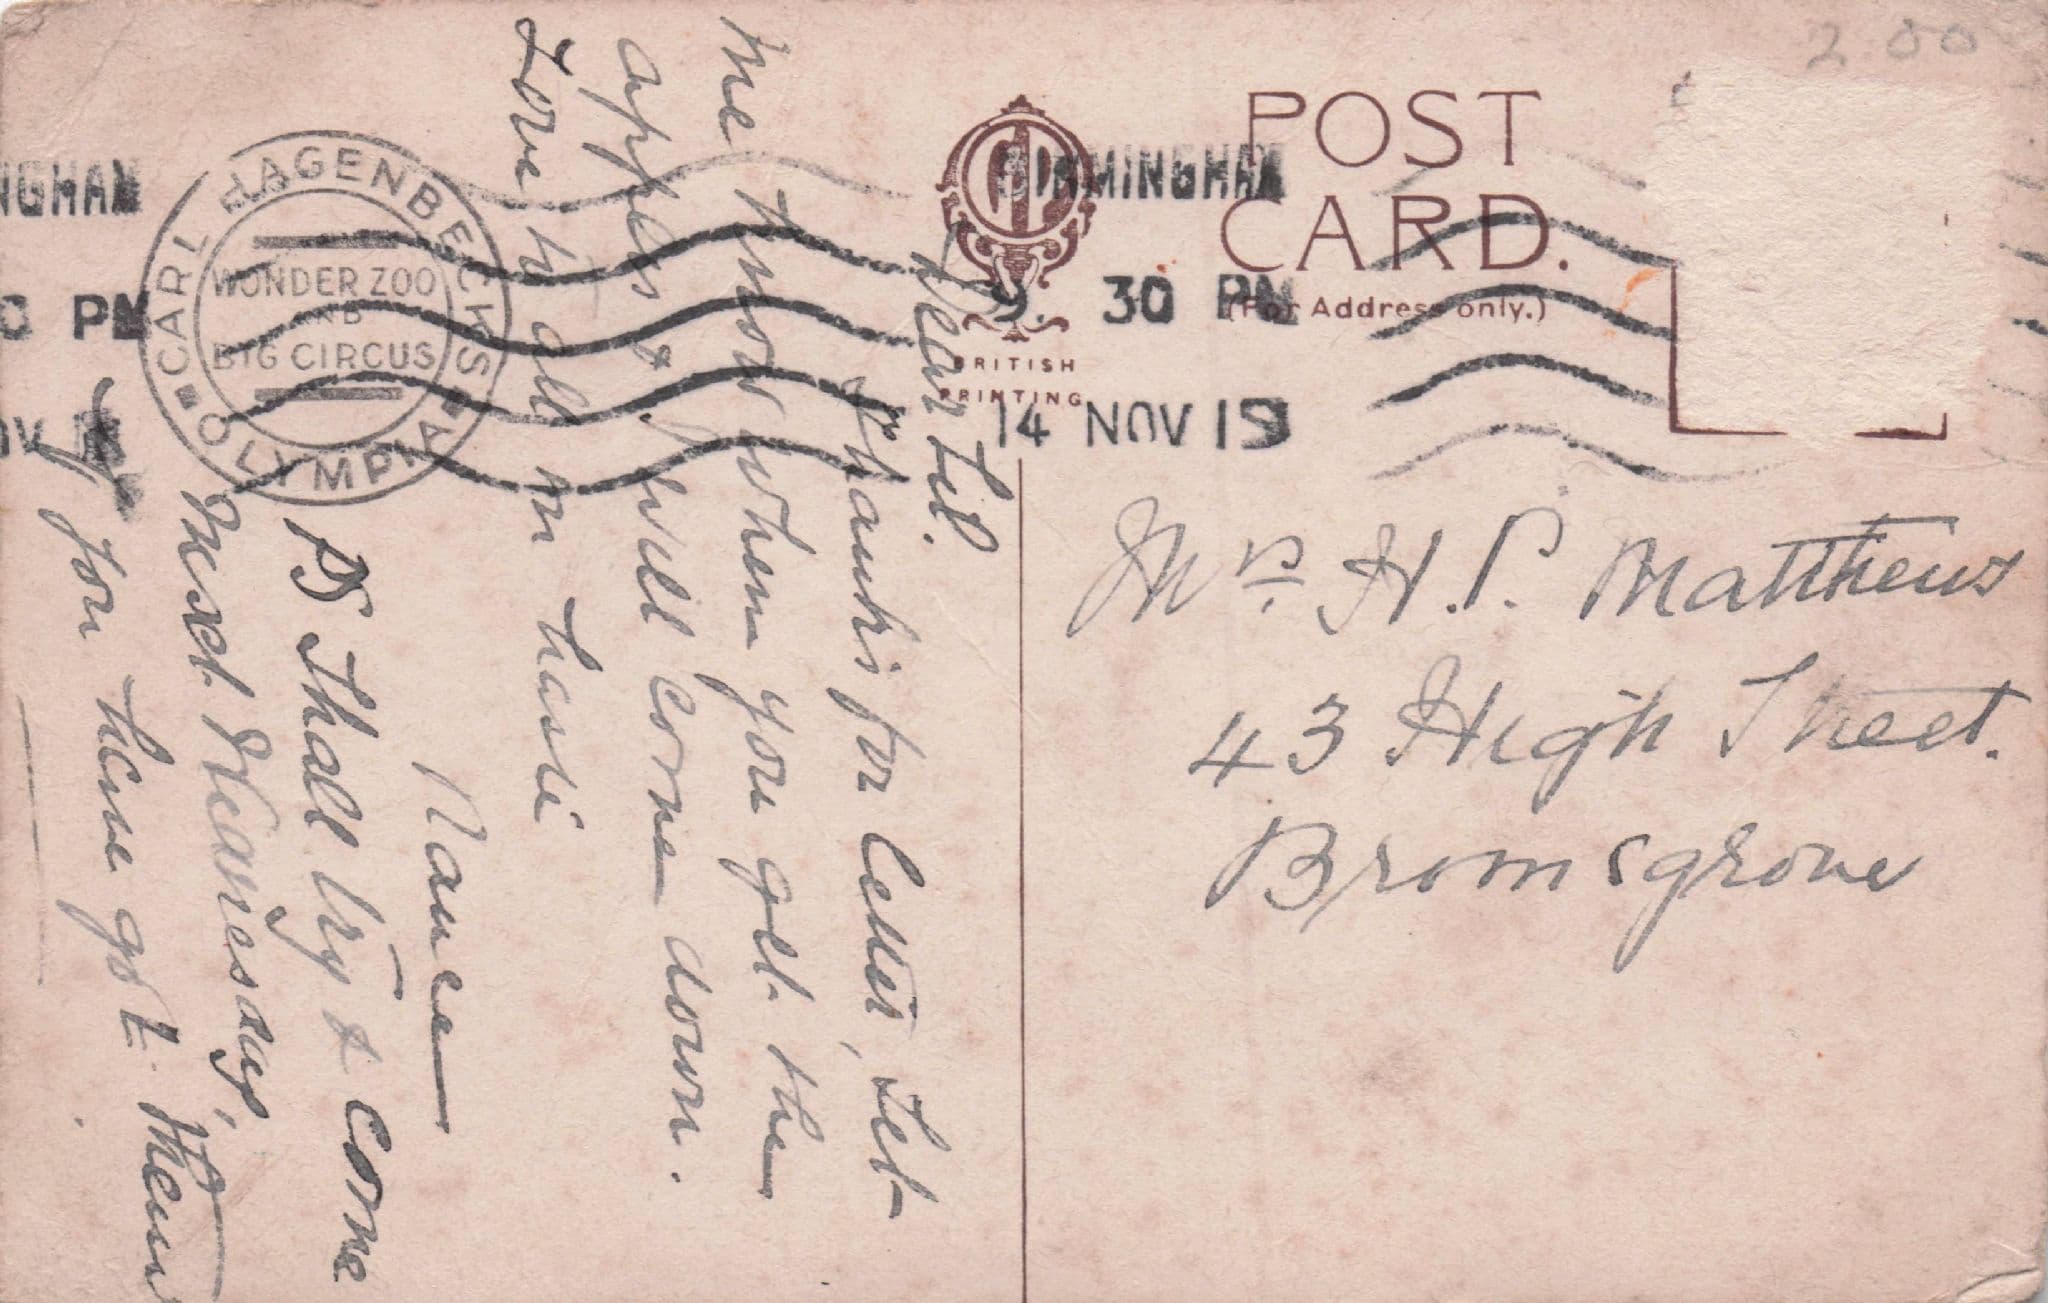 2.00
POST
CARD.
(For Address only.)
BRITISH
PRINTING
BIRMINGHAM
9. 30 PM
14 NOV 19
NGHAM
0 PM
OV
CARL HAGENBECK'S
WONDER ZOO
AND
BIG CIRCUS
OLYMPIA
Dear Lil.
Thanks for letter, Let
me know when you get the
apples & I will come down.
Love to all in haste
Nance
PS I hall try & come
next Wednesday,
if you have got them
Mrs. H. P. Matthews
43 High Street.
Bromsgrove